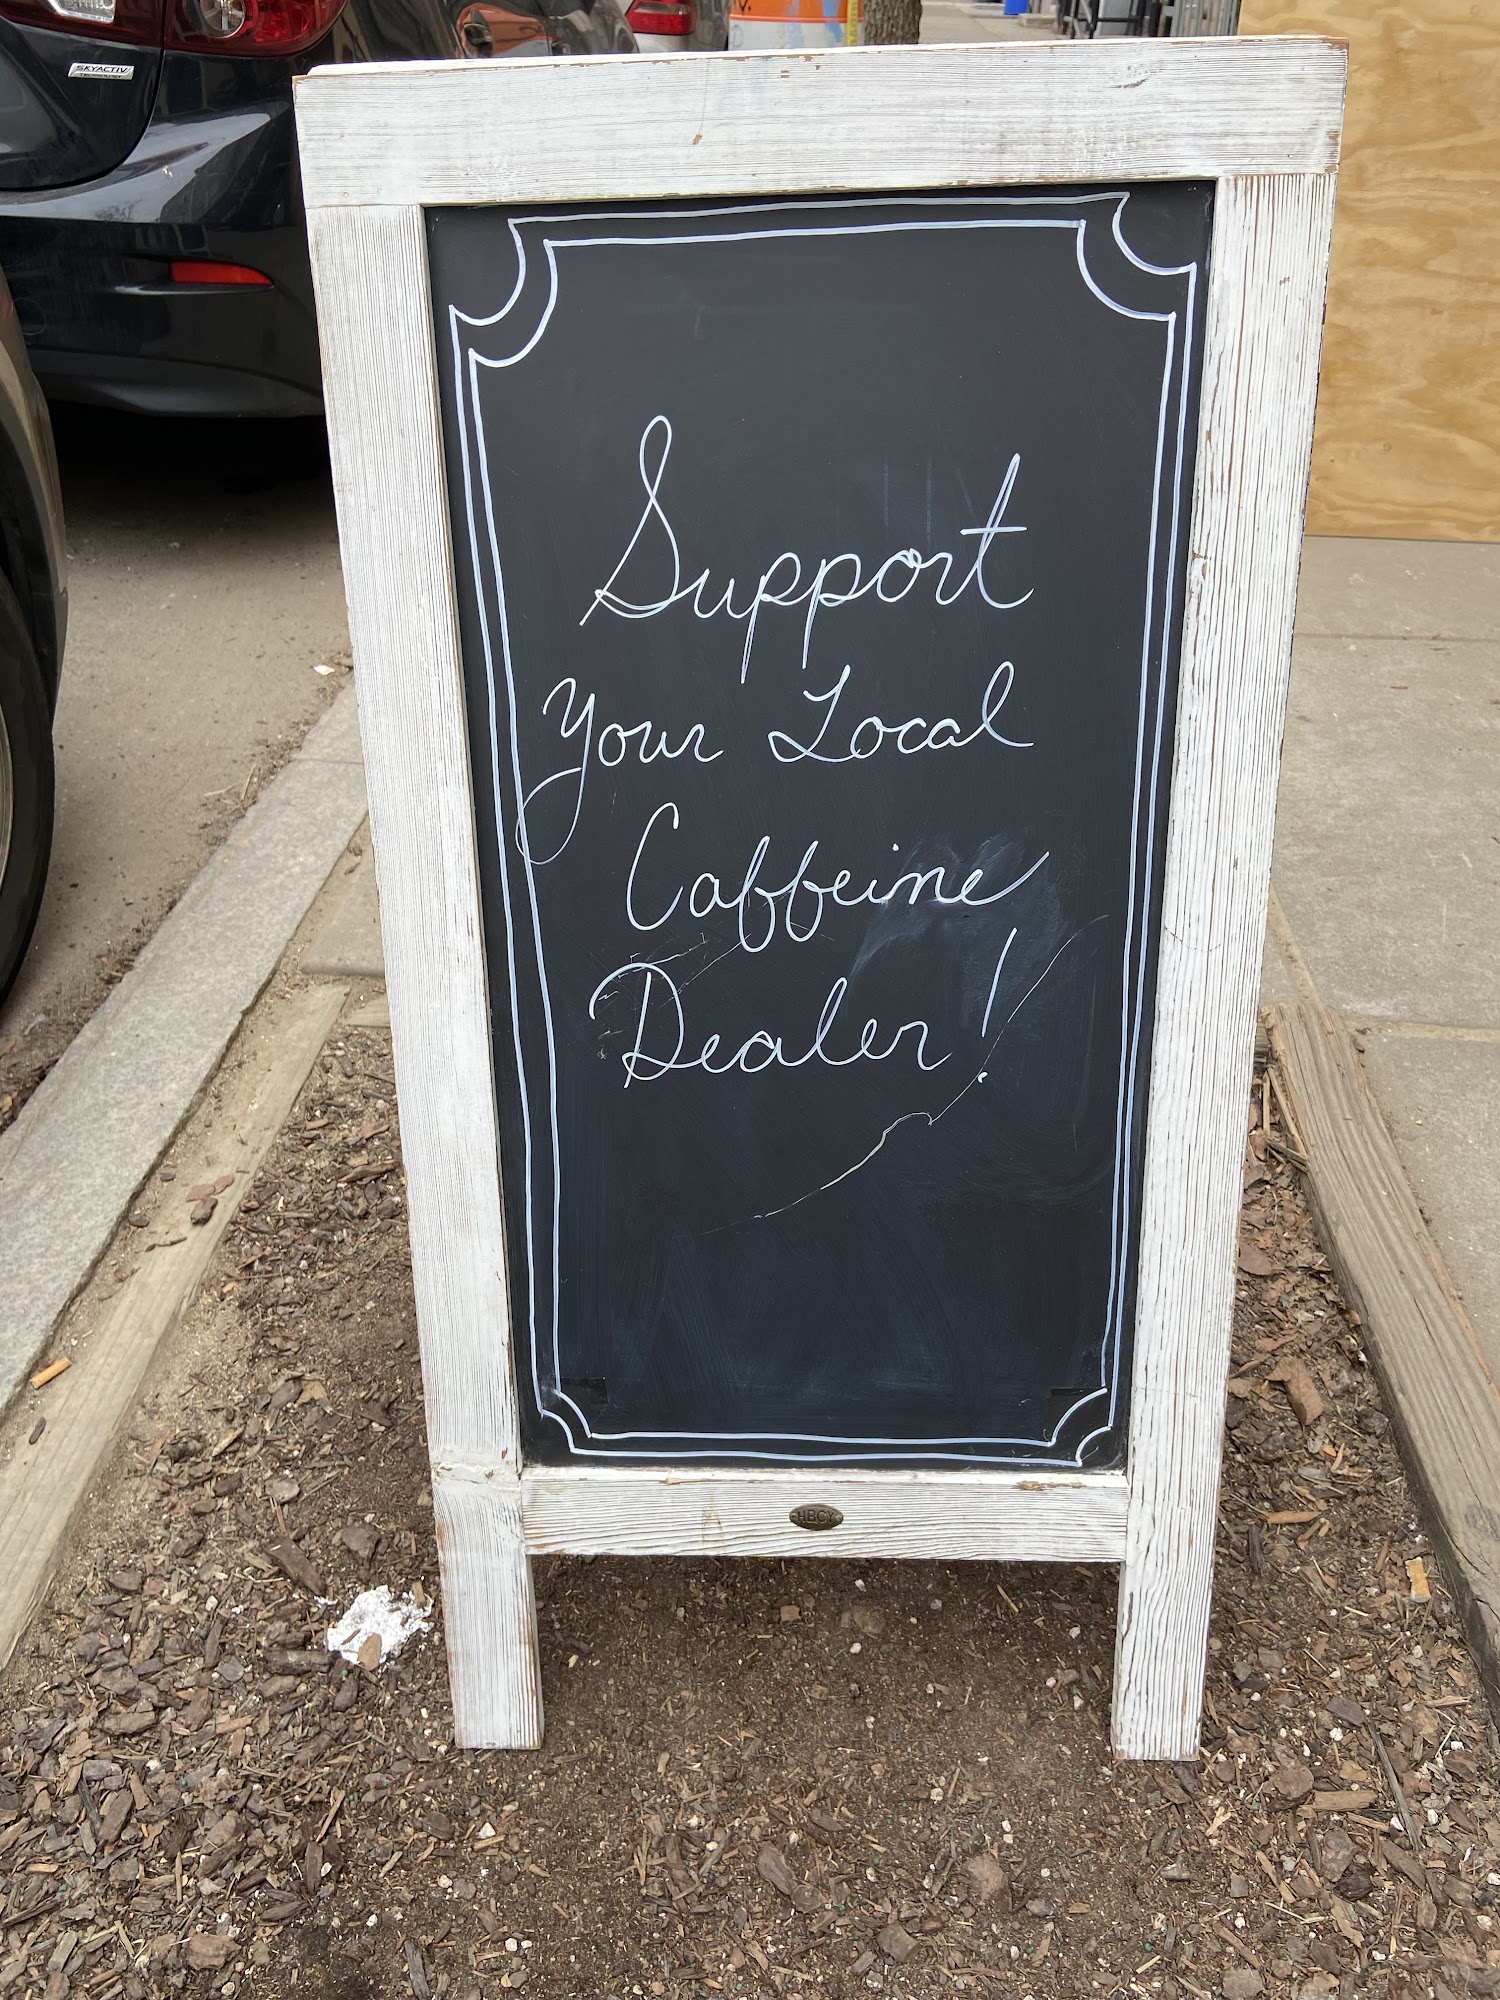 SKYACTIV
TECHNOLOGY
Support
Your Local
Caffeine
Dealer!
HBCY